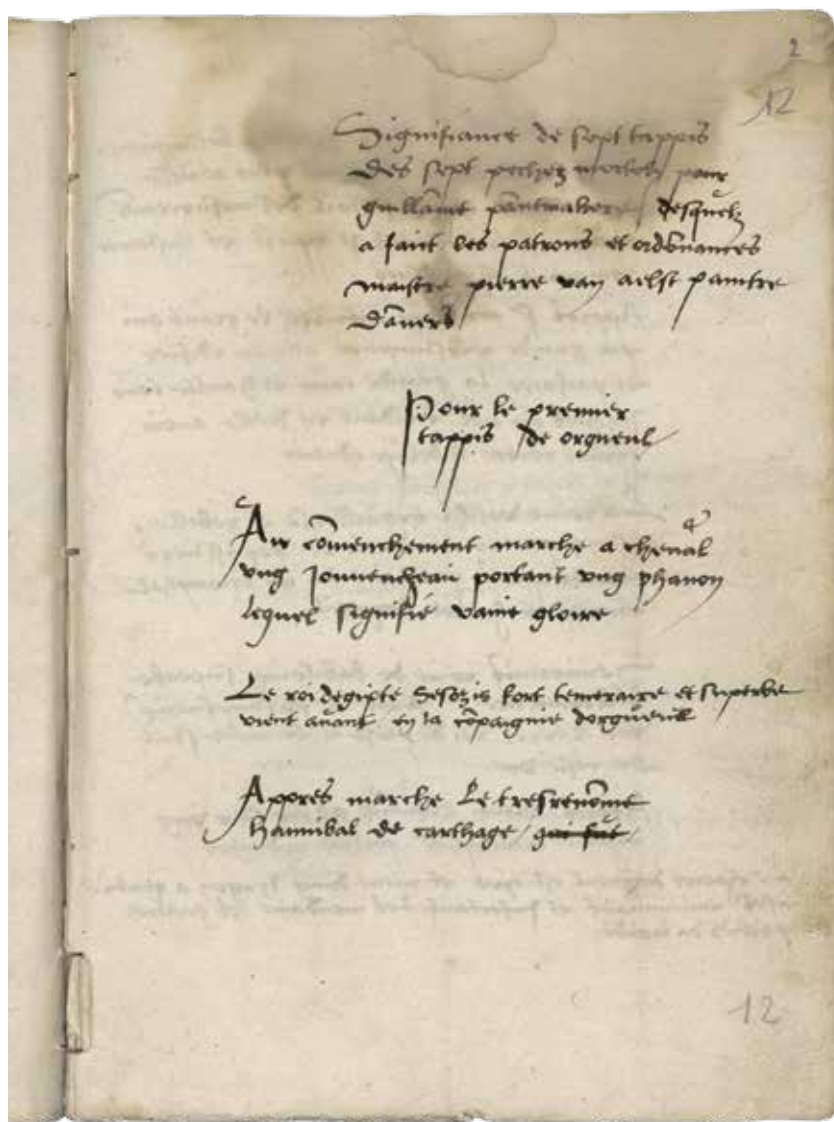 2
12
Signifiance de sept tappis
des sept pechez mortelz pour
guillame pantmakere / desquelz
a faict les patrons et ordonnances
maistre pierre van aelst paintre
danvers
Pour le premier
tappis de orgueul
Au comenchement marche a cheval
ung Jouvencheau portant ung phanon
lequel signifie vaine gloire
Le roi degipte Sesozis fort temeraire et superbe
vient avant en la compaignie dorgueul
Appres marche Le tresrenome
hannibal de carthage / qui fut /
12